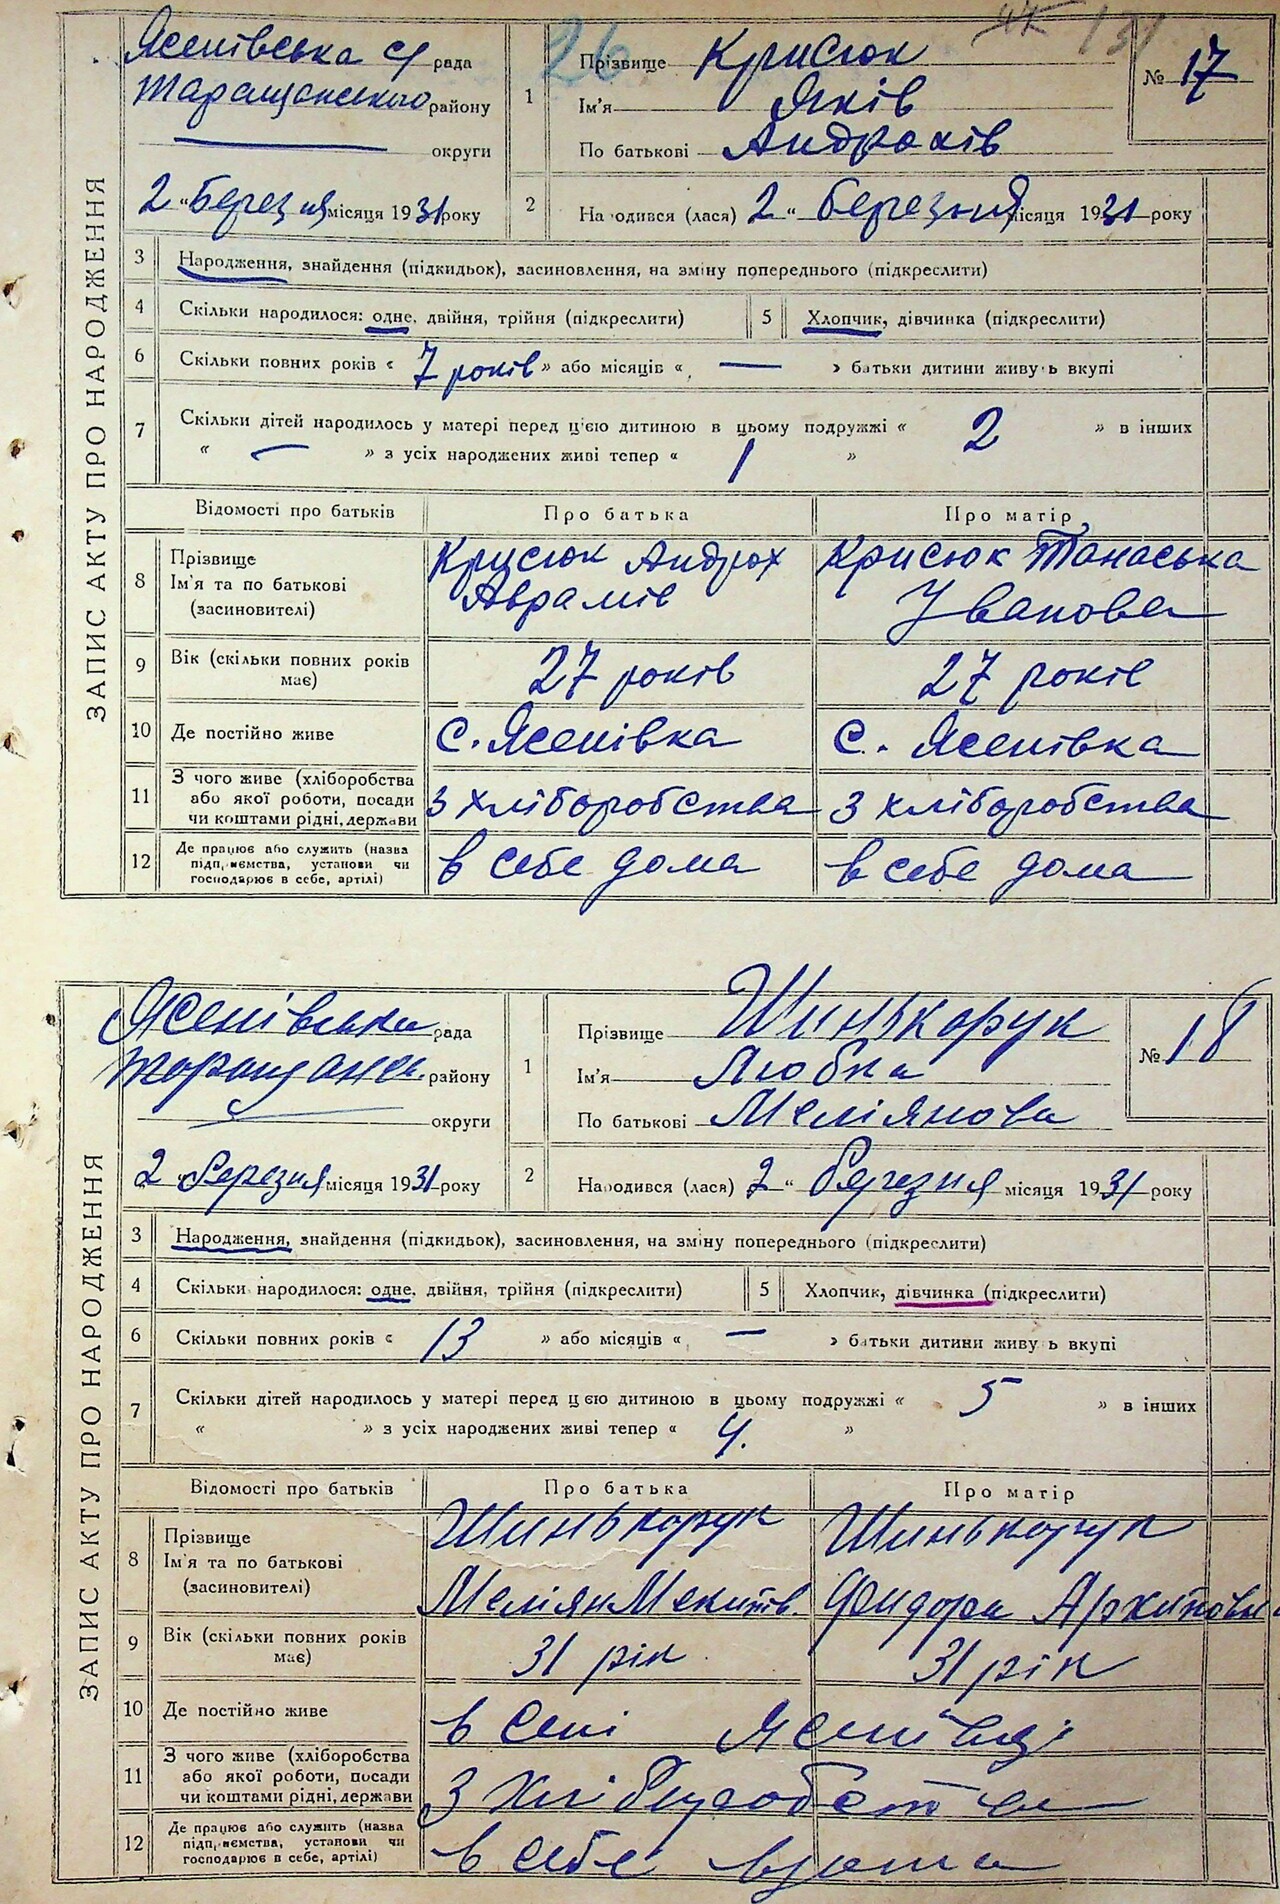 26
47 / 31
ЗАПИС АКТУ ПРО НАРОДЖЕННЯ
Ясенівська с/ рада
Таращанського району
— округи
2 " Березня місяця 1931 року
1
Прізвище Крисюк
Ім'я Яків
По батькові Андрохів
№ 17
2
Народився (лася) 2 " березня місяця 1931 року
3 Народження, знайдення (підкидьок), засиновлення, на зміну попереднього (підкреслити)
4 Скільки народилося: одне, двійня, трійня (підкреслити) 5 Хлопчик, дівчинка (підкреслити)
6 Скільки повних років « 7 років » або місяців « — » батьки дитини живуть вкупі
7 Скільки дітей народилось у матері перед цією дитиною в цьому подружжі « 2 » в інших
« — » з усіх народжених живі тепер « 1 »
Відомості про батьків Про батька Про матір
8 Прізвище Ім'я та по батькові (засиновителі) Крисюк Андрох Аврамів Крисюк Танаська Іванова
9 Вік (скільки повних років має) 27 років 27 років
10 Де постійно живе с. Ясенівка с. Ясенівка
11 З чого живе (хліборобства або якої роботи, посади чи коштами рідні, держави З хліборобства З хліборобства
12 Де працює або служить (назва підприємства, установи чи господарює в себе, артілі) в себе дома в себе дома
ЗАПИС АКТУ ПРО НАРОДЖЕННЯ
Ясенівська рада
Таращанськ. району
— округи
2 " Березня місяця 1931 року
1
Прізвище Шинькорук
Ім'я Любка
По батькові Меліянова
№ 18
2
Народився (лася) 2 " березня місяця 1931 року
3 Народження, знайдення (підкидьок), засиновлення, на зміну попереднього (підкреслити)
4 Скільки народилося: одне, двійня, трійня (підкреслити) 5 Хлопчик, дівчинка (підкреслити)
6 Скільки повних років « 13 » або місяців « — » батьки дитини живуть вкупі
7 Скільки дітей народилось у матері перед цією дитиною в цьому подружжі « 5 » в інших
« » з усіх народжених живі тепер « 4. »
Відомості про батьків Про батька Про матір
8 Прізвище Ім'я та по батькові (засиновителі) Шинькорук Меліян Микитів. Шинькорук Фендора Архипова
9 Вік (скільки повних років має) 31 рік 31 рік
10 Де постійно живе в селі Ясенівці
11 З чого живе (хліборобства або якої роботи, посади чи коштами рідні, держави З хліборобства
12 Де працює або служить (назва підприємства, установи чи господарює в себе, артілі) в себе вдома